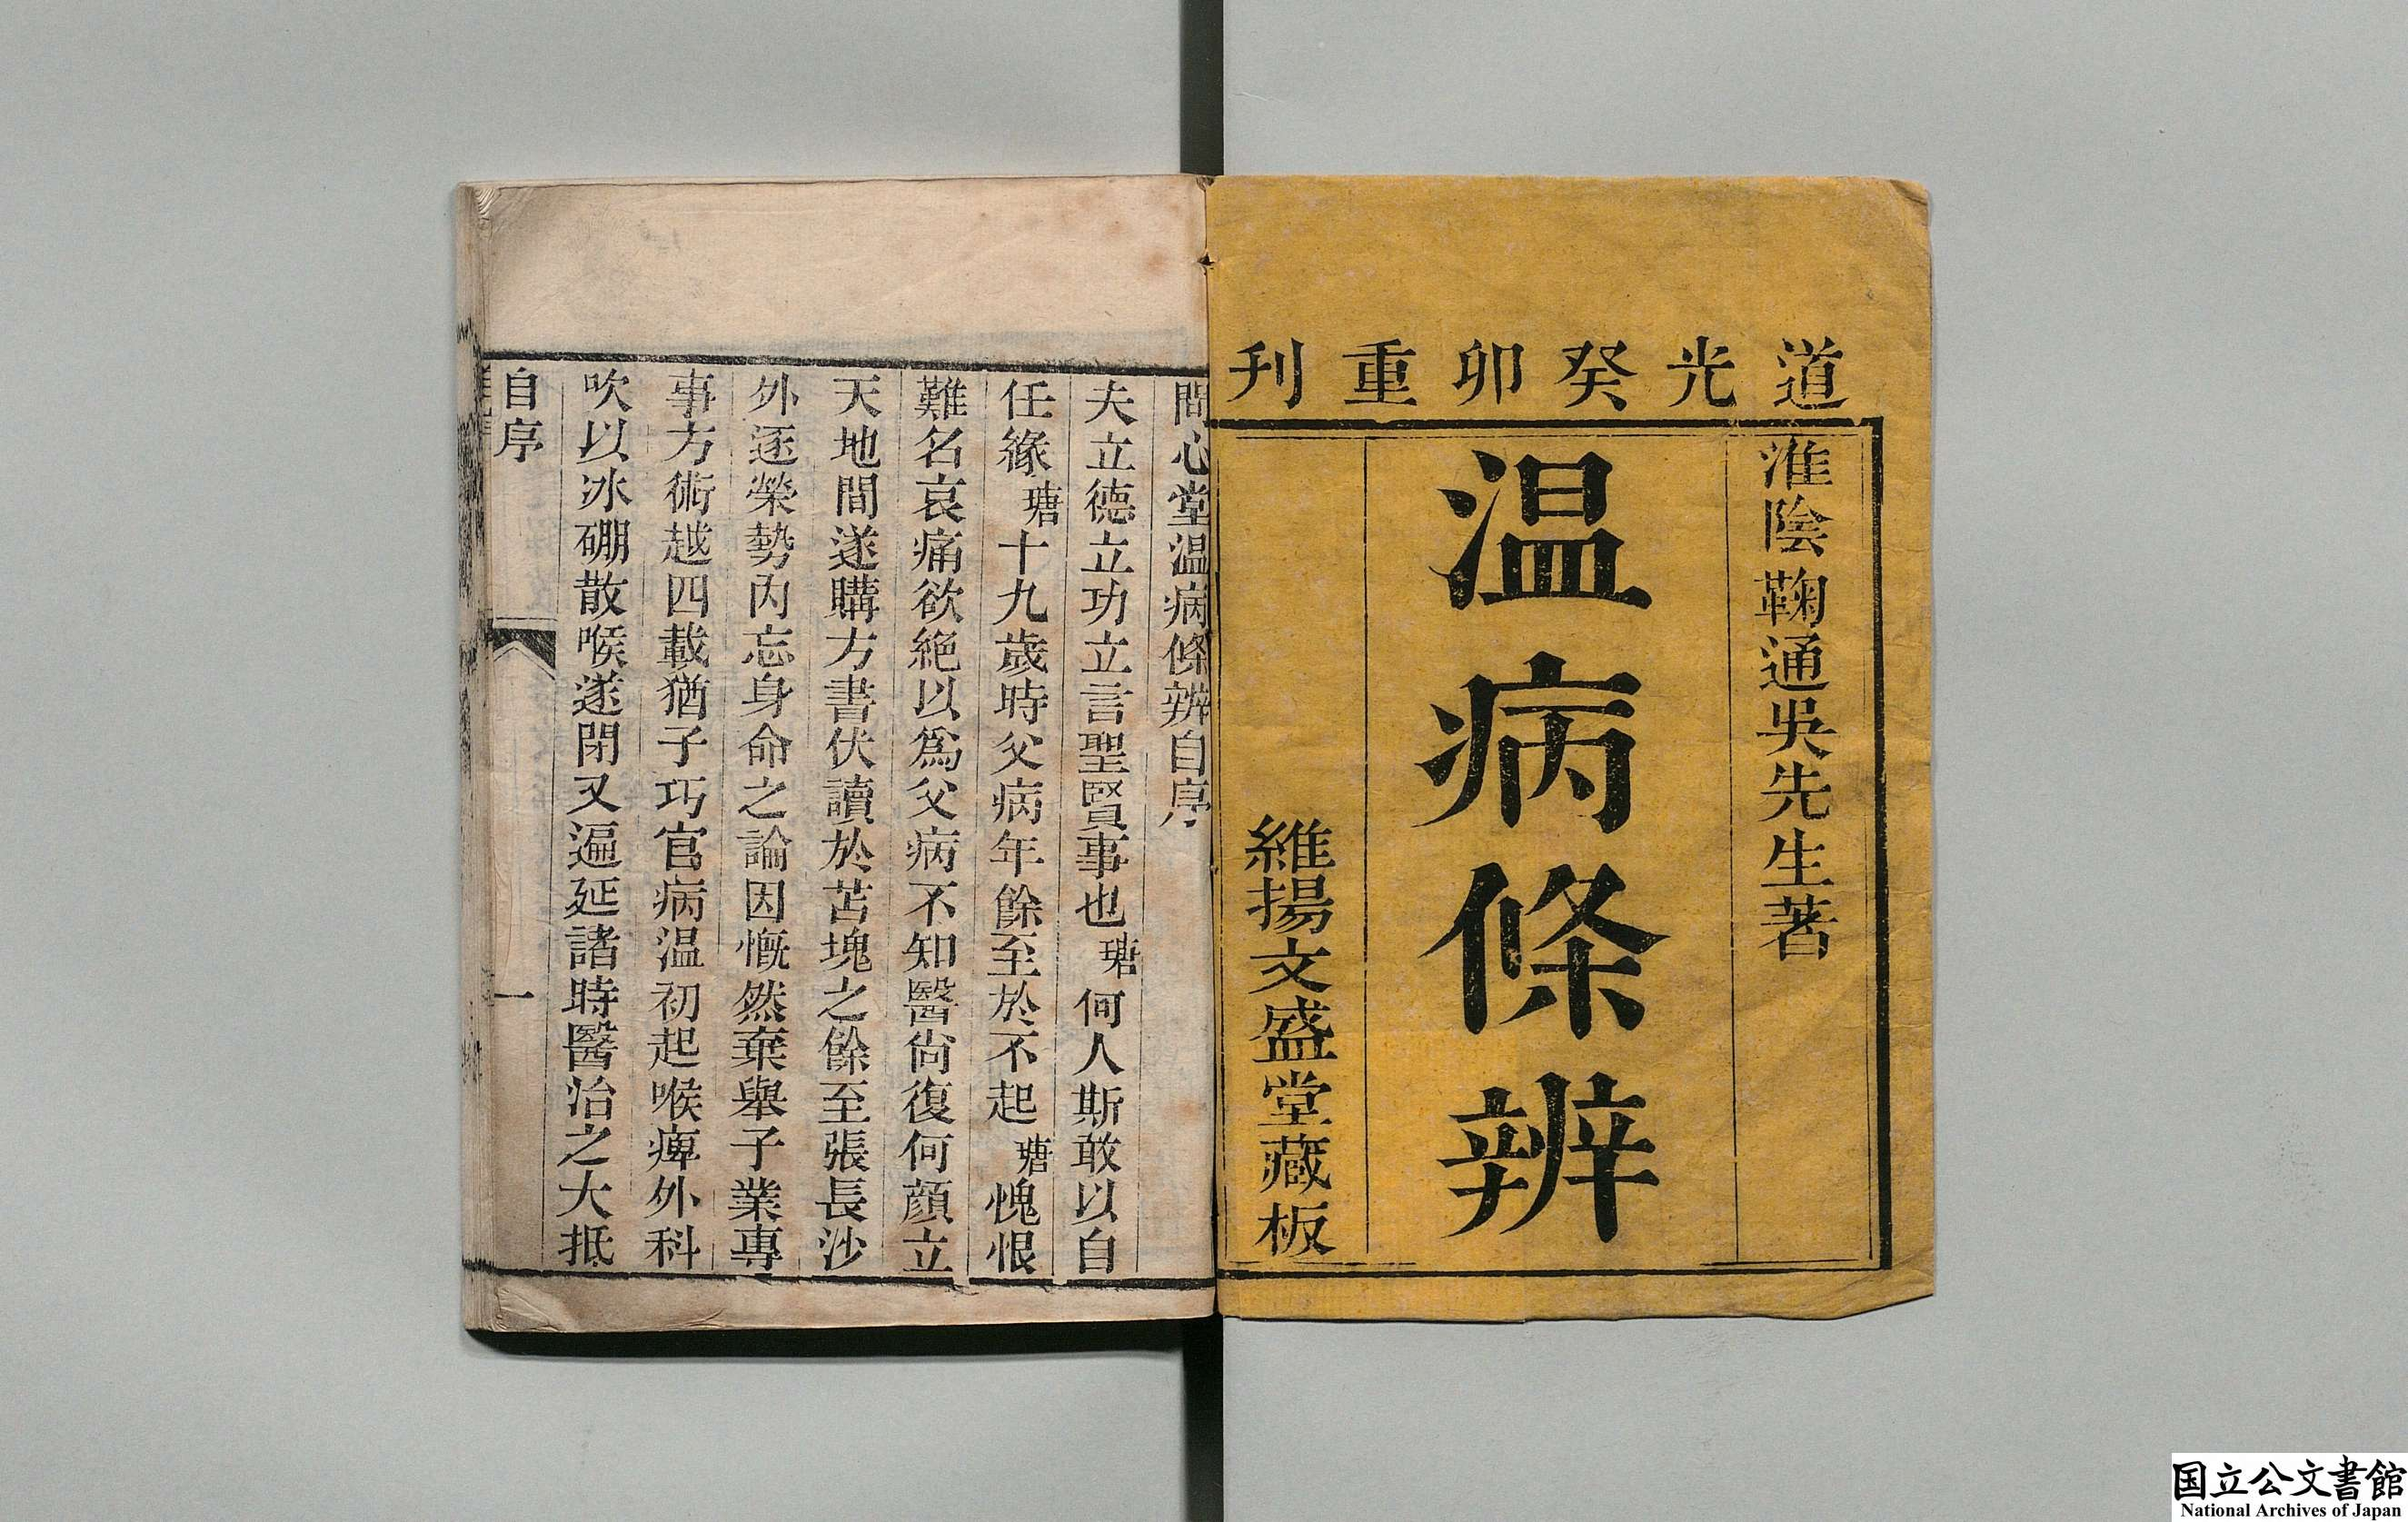 道光癸卯重刊
淮陰鞠通吳先生著
温病條辨
維揚文盛堂藏板
問心堂温病條辨自序
夫立德立功立言聖賢事也瑭何人斯敢以自
任緣瑭十九歲時父病年餘至於不起瑭愧恨
難名哀痛欲絕以爲父病不知醫尙復何顔立
天地間遂購方書伏讀於苫塊之餘至張長沙
外逐榮勢內忘身命之論因慨然棄舉子業專
事方術越四載猶子巧官病温初起喉痺外科
吹以冰硼散喉遂閉又遍延諸時醫治之大抵
自序
一
国立公文書館
National Archives of Japan